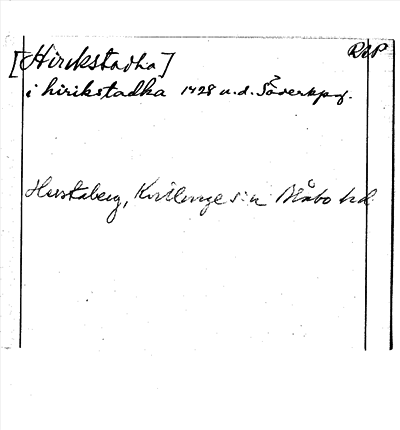 [Hirikstadha] RAP
i hirikstadka 1428 u.d. Söderkpg.
Herstaberg, Kvillinge s:n Bråbo hd